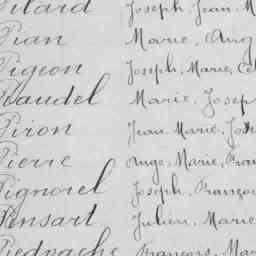 Pitard Joseph, Jean, M
Piran Marie, Ang
Pigeon Joseph, Marie, Cé
Plaudel Marie, Josep
Piron Jean Marie, Jos
Pierre Ange, Marie, Fran
Pignorel Joseph, Françoi
Pinsart Julien, Marie
Piedvache François, Mar